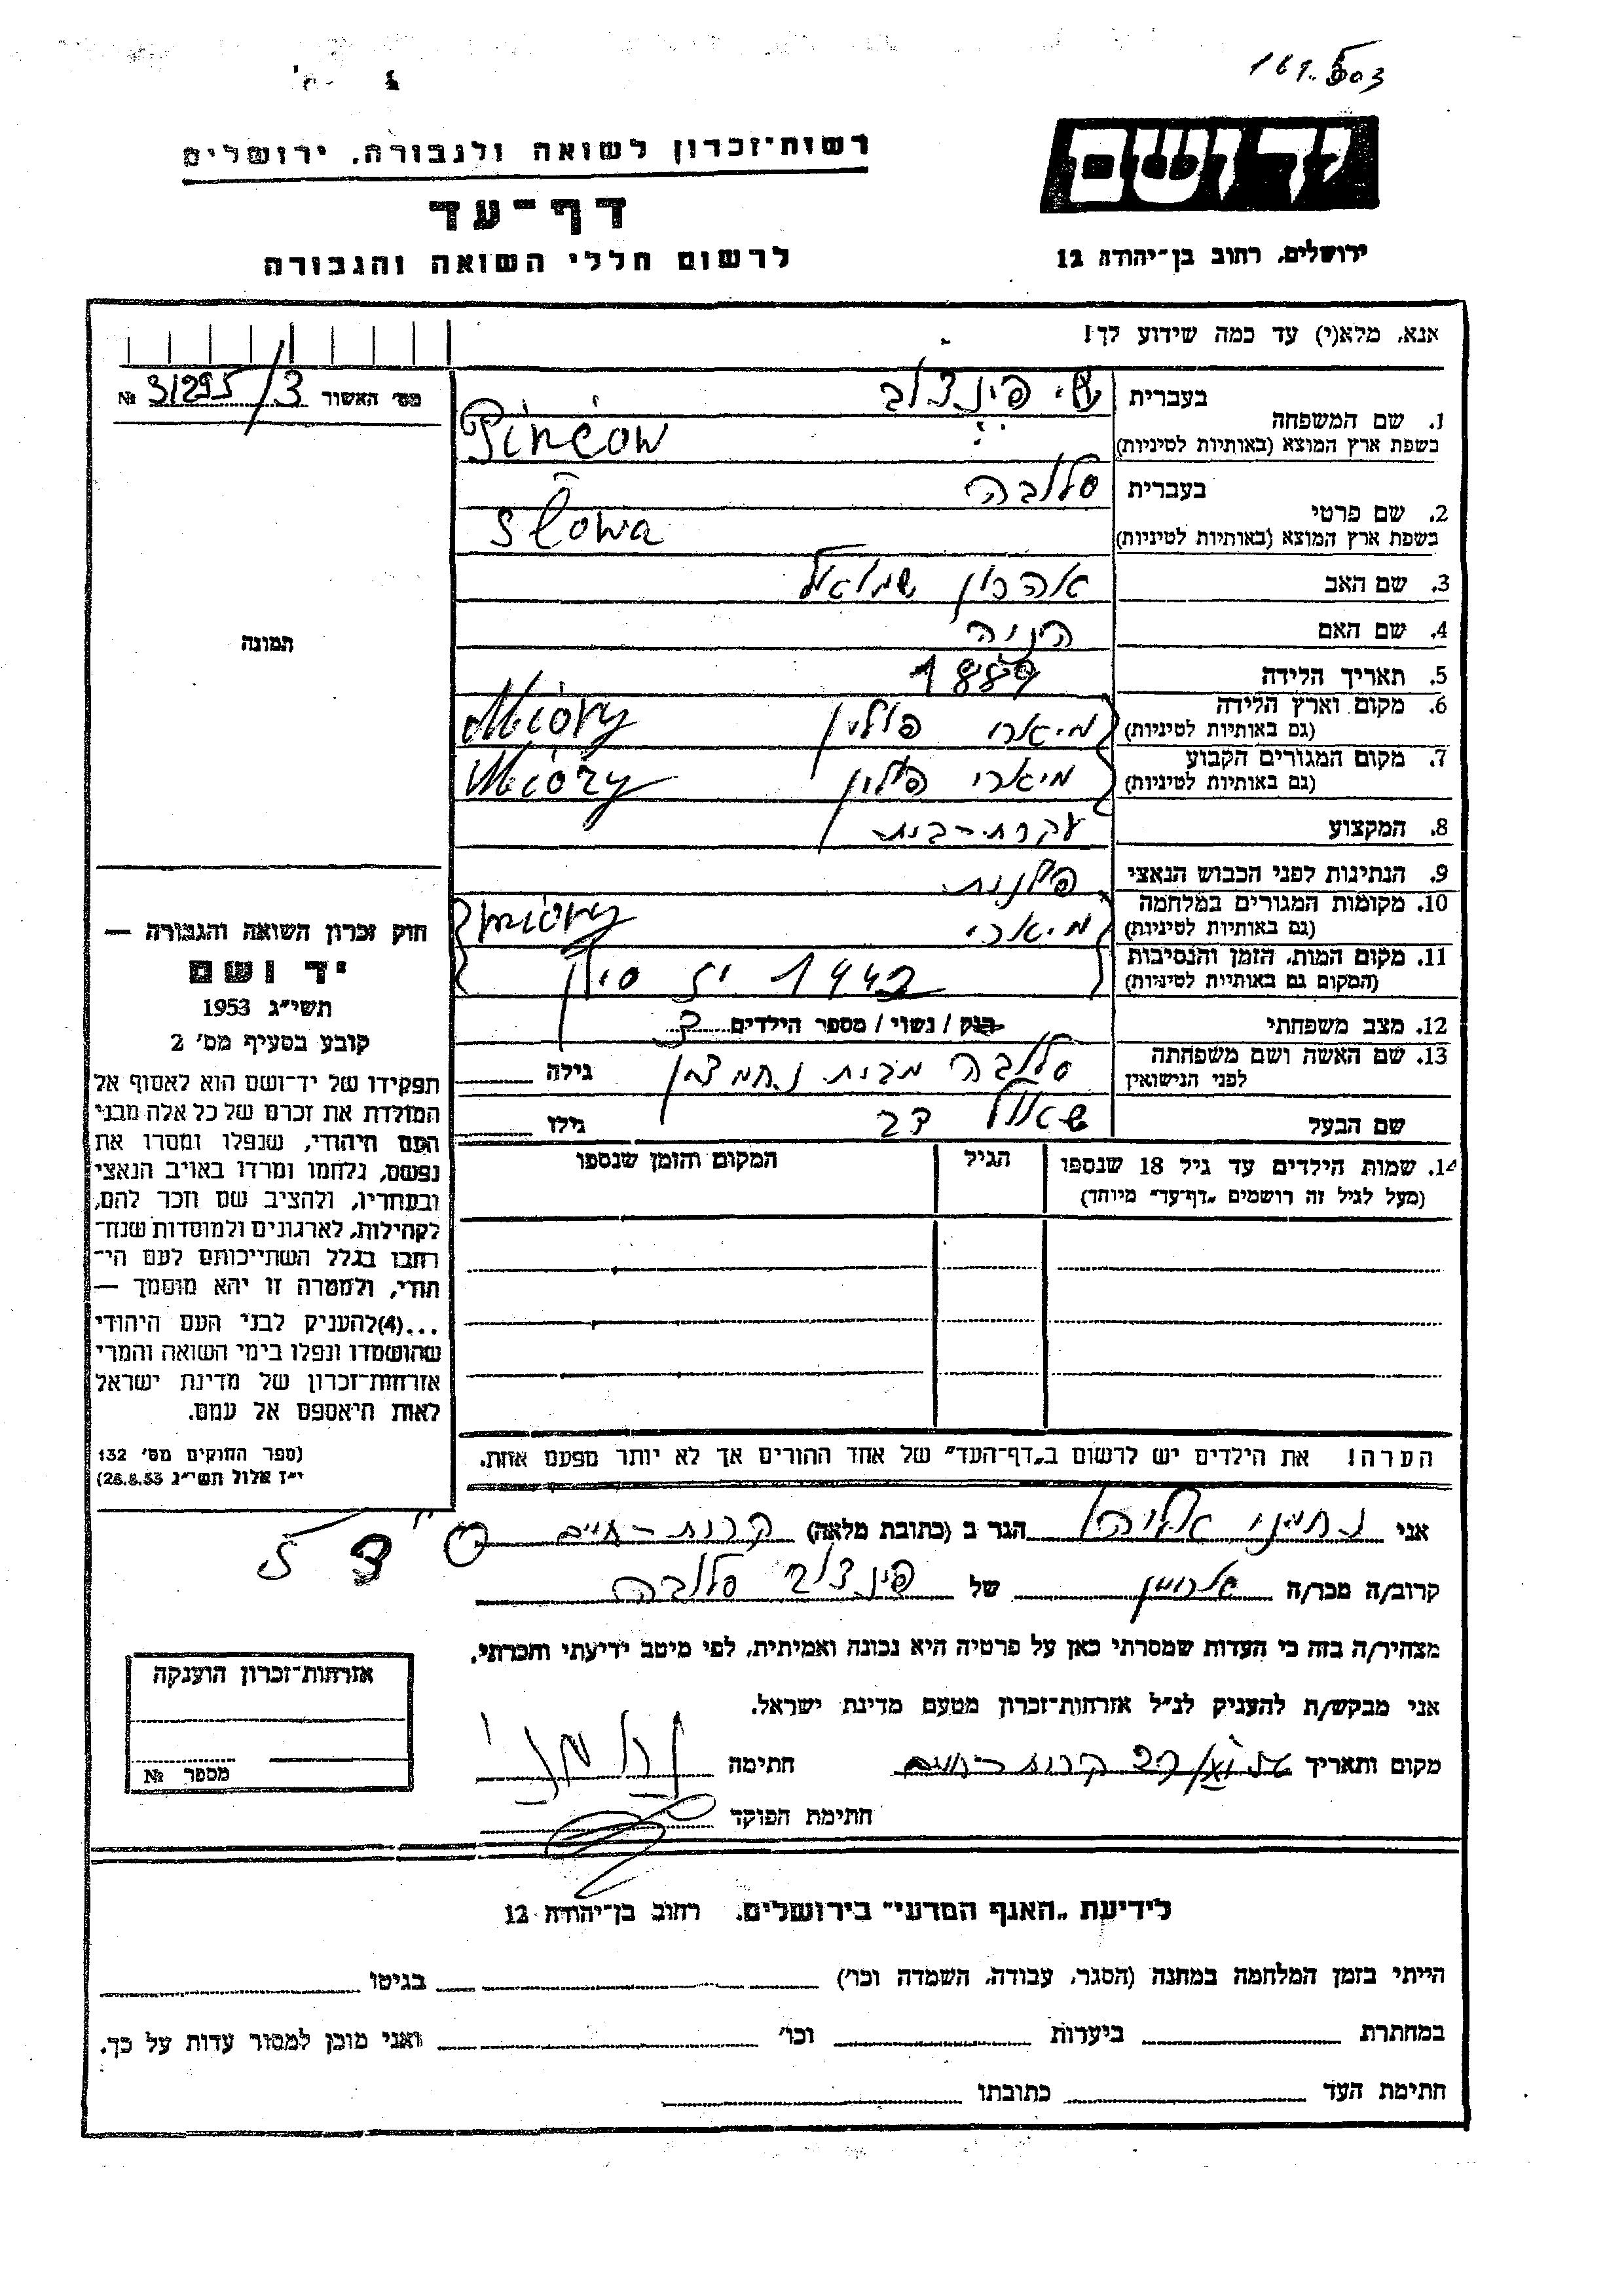 169.503
יד ושם
רשות־זכרון לשואה ולגבורה. ירושלים
דף־עד
לרשום חללי השואה והגבורה
ירושלים. רחוב בן־יהודה 12
אנא. מלא(י) עד כמה שידוע לך!
מס׳ האשור 31295/3 №
1. שם המשפחה
בעברית פינצ׳וב
בשפת ארץ המוצא (באותיות לטיניות) Pinčow
2. שם פרטי
בעברית סלובה
בשפת ארץ המוצא (באותיות לטיניות) Słowa
3. שם האב אהרון שמואל
4. שם האם
5. תאריך הלידה 1889
6. מקום וארץ הלידה מיארי פולין Mióry
(גם באותיות לטיניות)
7. מקום המגורים הקבוע מיארי פולין Mióry
(גם באותיות לטיניות)
8. המקצוע עקרת-בית
9. הנתינות לפני הכבוש הנאצי פולנית
10. מקומות המגורים במלחמה מיארי Mióry
(גם באותיות לטיניות)
11. מקום המות. הזמן והנסיבות 1942 יז סיון
(המקום גם באותיות לטיניות)
12. מצב משפחתי רוק / נשוי / מספר הילדים 3
13. שם האשה ושם משפחתה סלובה מבית נחמצמן גילה
לפני הנישואין
שם הבעל שאול דב גילו
14. שמות הילדים עד גיל 18 שנספו
(מעל לגיל זה רושמים „דף־עד״ מיוחד)
הגיל
המקום והזמן שנספו
תמונה
חוק זכרון השואה והגבורה —
יד ושם
תשי״ג 1953
קובע בסעיף מס׳ 2
תפקידו של יד־ושם הוא לאסוף אל
המולדת את זכרם של כל אלה מבני
העם היהודי, שנפלו ומסרו את
נפשם, נלחמו ומרדו באויב הנאצי
ובעוזריו, ולהציב שם וזכר להם,
לקהילות, לארגונים ולמוסדות שנח־
רבו בגלל השתייכותם לעם הי־
הודי, ולמטרה זו יהא מוסמך —
...(4)להעניק לבני העם היהודי
שהושמדו ונפלו בימי השואה והמרי
אזרחות־זכרון של מדינת ישראל
לאות היאספם אל עמם.
(ספר החוקים מס׳ 132
י״ז אלול תשי״ג 28.8.53)
הערה! את הילדים יש לרשום ב„דף־העד״ של אחד ההורים אך לא יותר מפעם אחת.
אני נחמני אליהו הגר ב (כתובת מלאה) קרית-חיים
קרוב/ה מכר/ה של פינצ׳וב סלובה
מצהיר/ה בזה כי העדות שמסרתי כאן על פרטיה היא נכונה ואמיתית, לפי מיטב ידיעתי והכרתי.
אני מבקש/ת להעניק לנ״ל אזרחות־זכרון מטעם מדינת ישראל.
מקום ותאריך קרית-חיים חתימה
חתימת הפוקד
אזרחות־זכרון הוענקה
מספר №
לידיעת „האגף המדעי״ בירושלים. רחוב בן־יהודה 12
הייתי בזמן המלחמה במחנה (הסגר, עבודה, השמדה וכו׳) בגיטו
במחתרת ביערות וכו׳ ואני מוכן למסור עדות על כך.
חתימת העד כתובתו